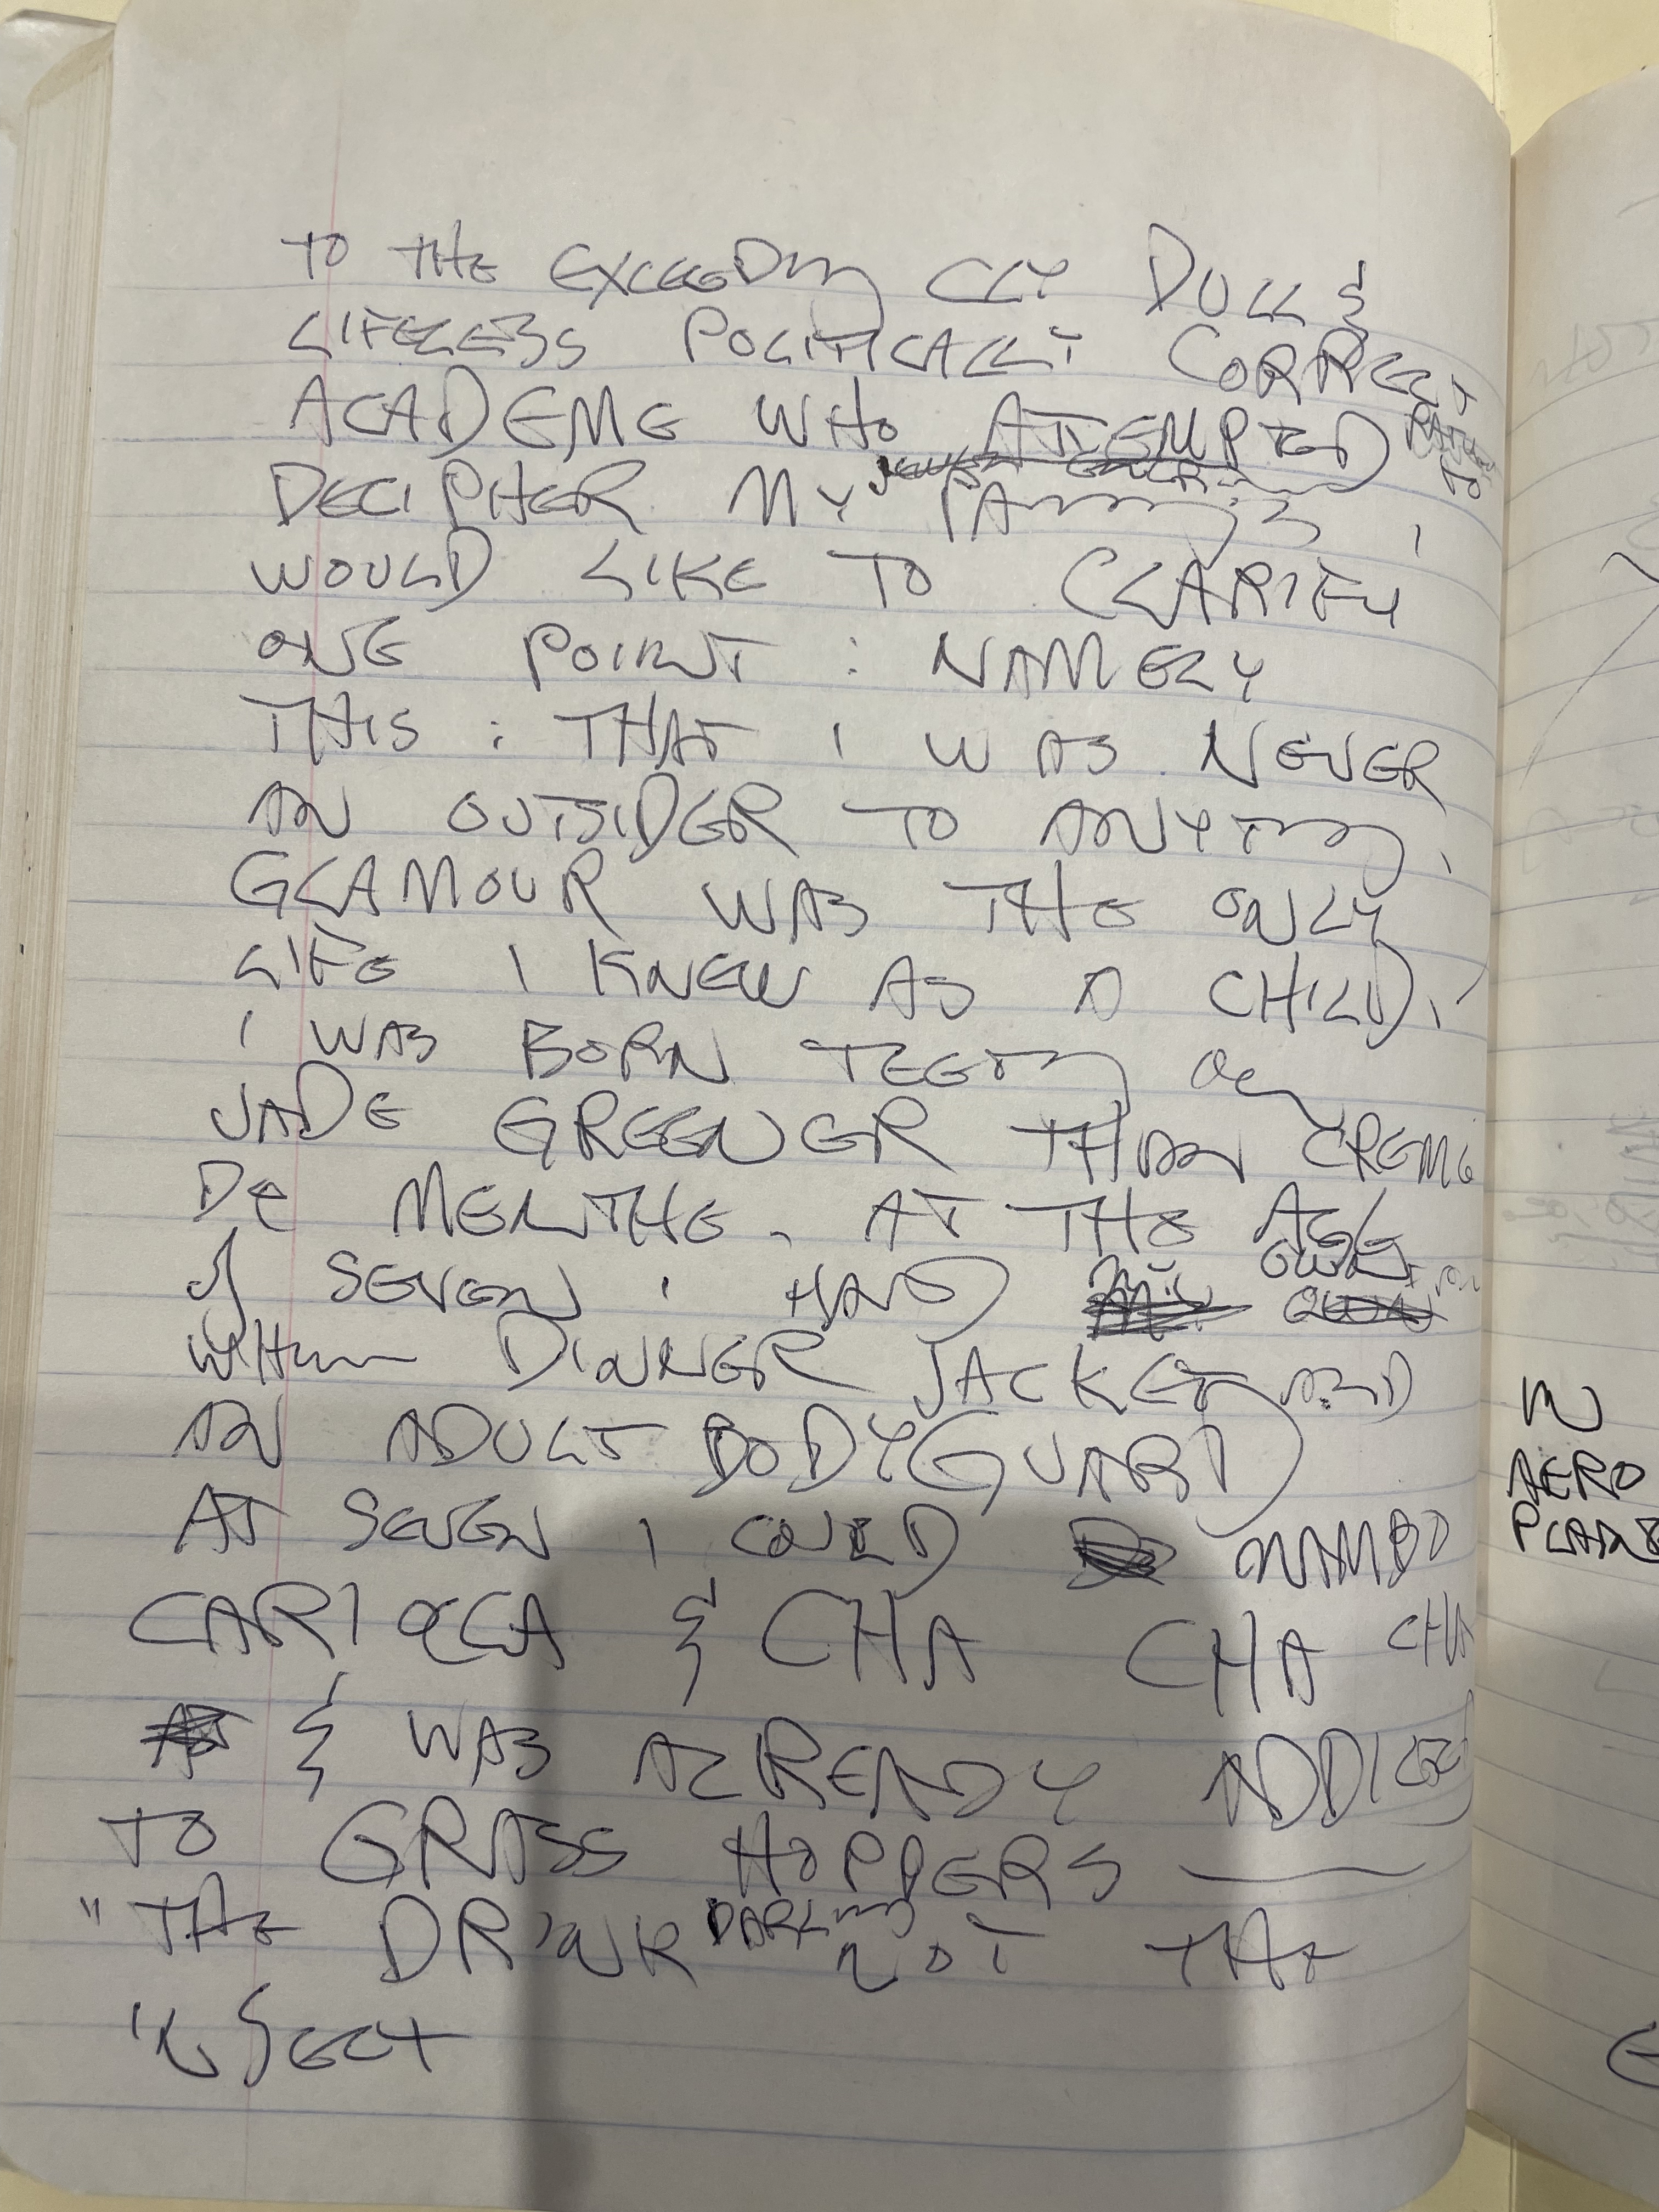 TO THE EXCEEDINGLY DULL &
LIFELESS POLITICALLY CORRECT
ACADEME WHO ATTEMPTED
TO
DECIPHER MY PAINTINGS I
WOULD LIKE TO CLARIFY
ONE POINT : NAMELY
THIS : THAT I WAS NEVER
AN OUTSIDER TO ANYTHING.
GLAMOUR WAS THE ONLY
LIFE I KNEW AS A CHILD.
I WAS BORN TEETHING ON
JADE GREENER THAN CREME
DE MENTHE. AT THE AGE
OF SEVEN I HAD MY OWN
WHITE DINNER JACKET AND
AN ADULT BODYGUARD
AT SEVEN I COULD MAMBO
CARIOCA & CHA CHA CHA
& WAS ALREADY ADDICTED
TO GRASS HOPPERS —
"THE DRINK DARLING NOT THE
INSECT
IN
AERO
PLANE